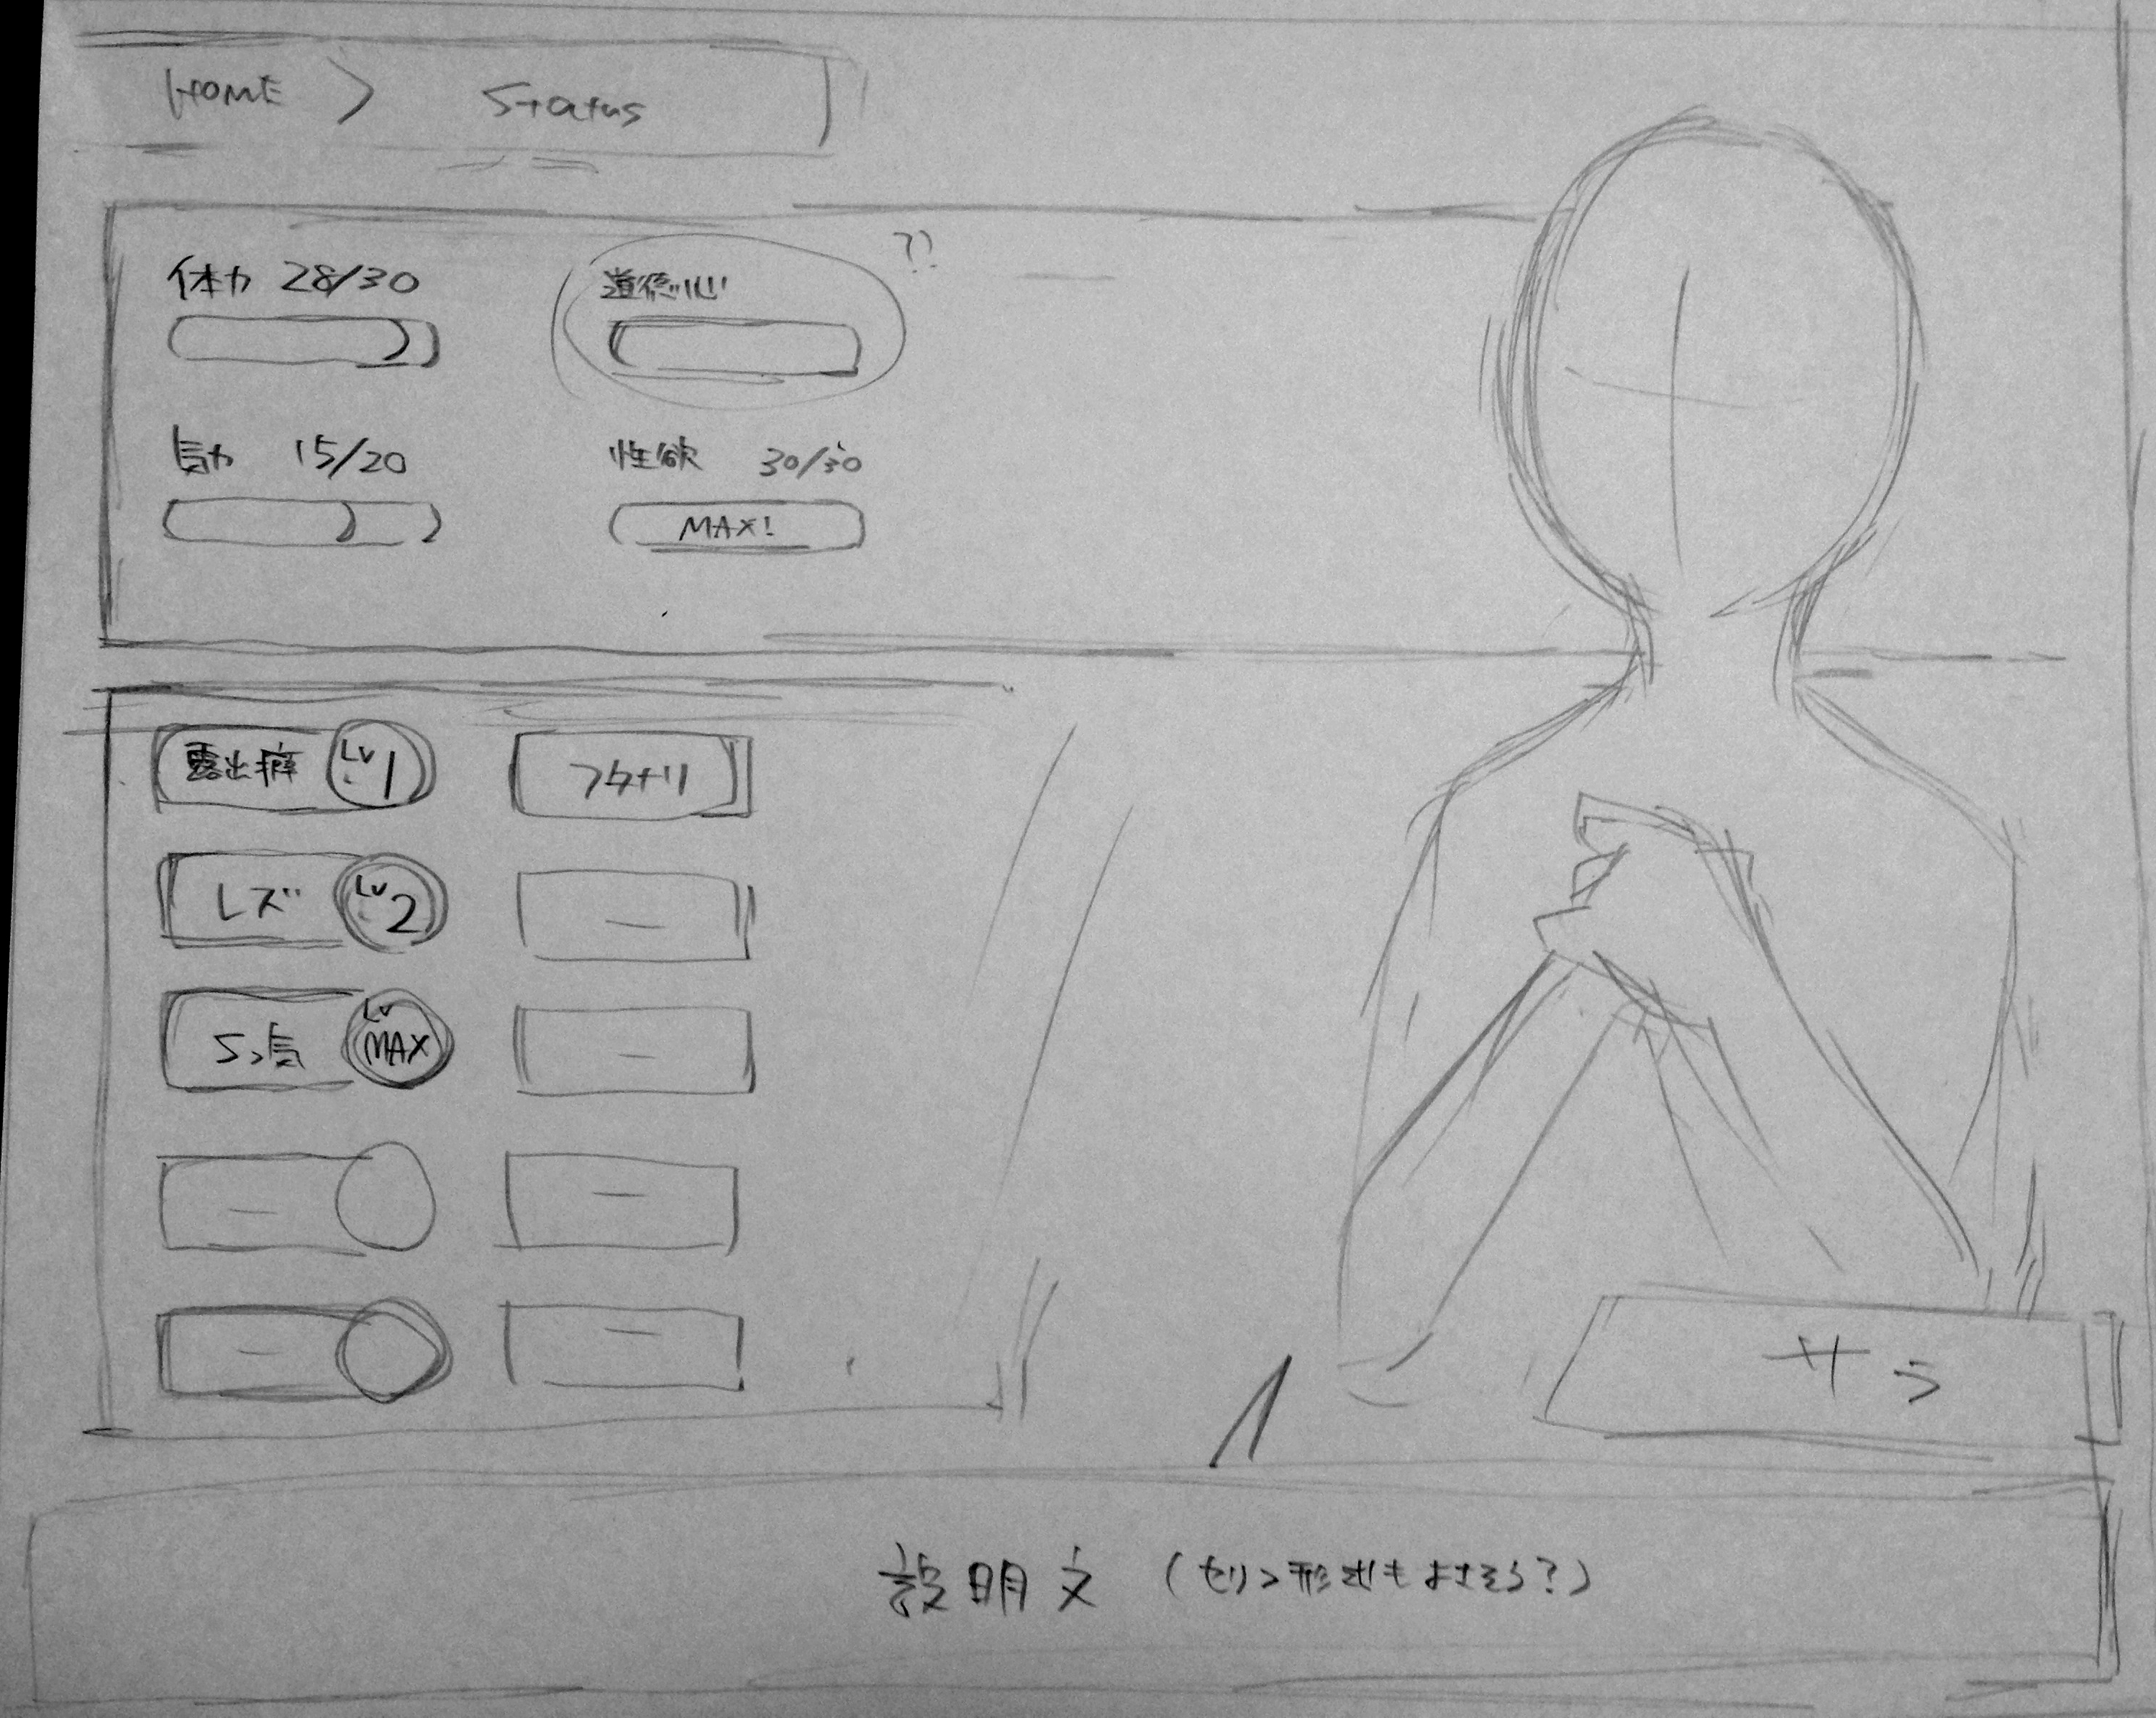 HOME > Status
体力 28/30
道徳心
??
気力 15/20
性欲 30/30
MAX!
露出癖 Lv 1
フタナリ
レズ Lv 2
—
Sっ気 Lv MAX
—
—
—
—
—
サラ
説明文 (セリフ形式もよさそう?)